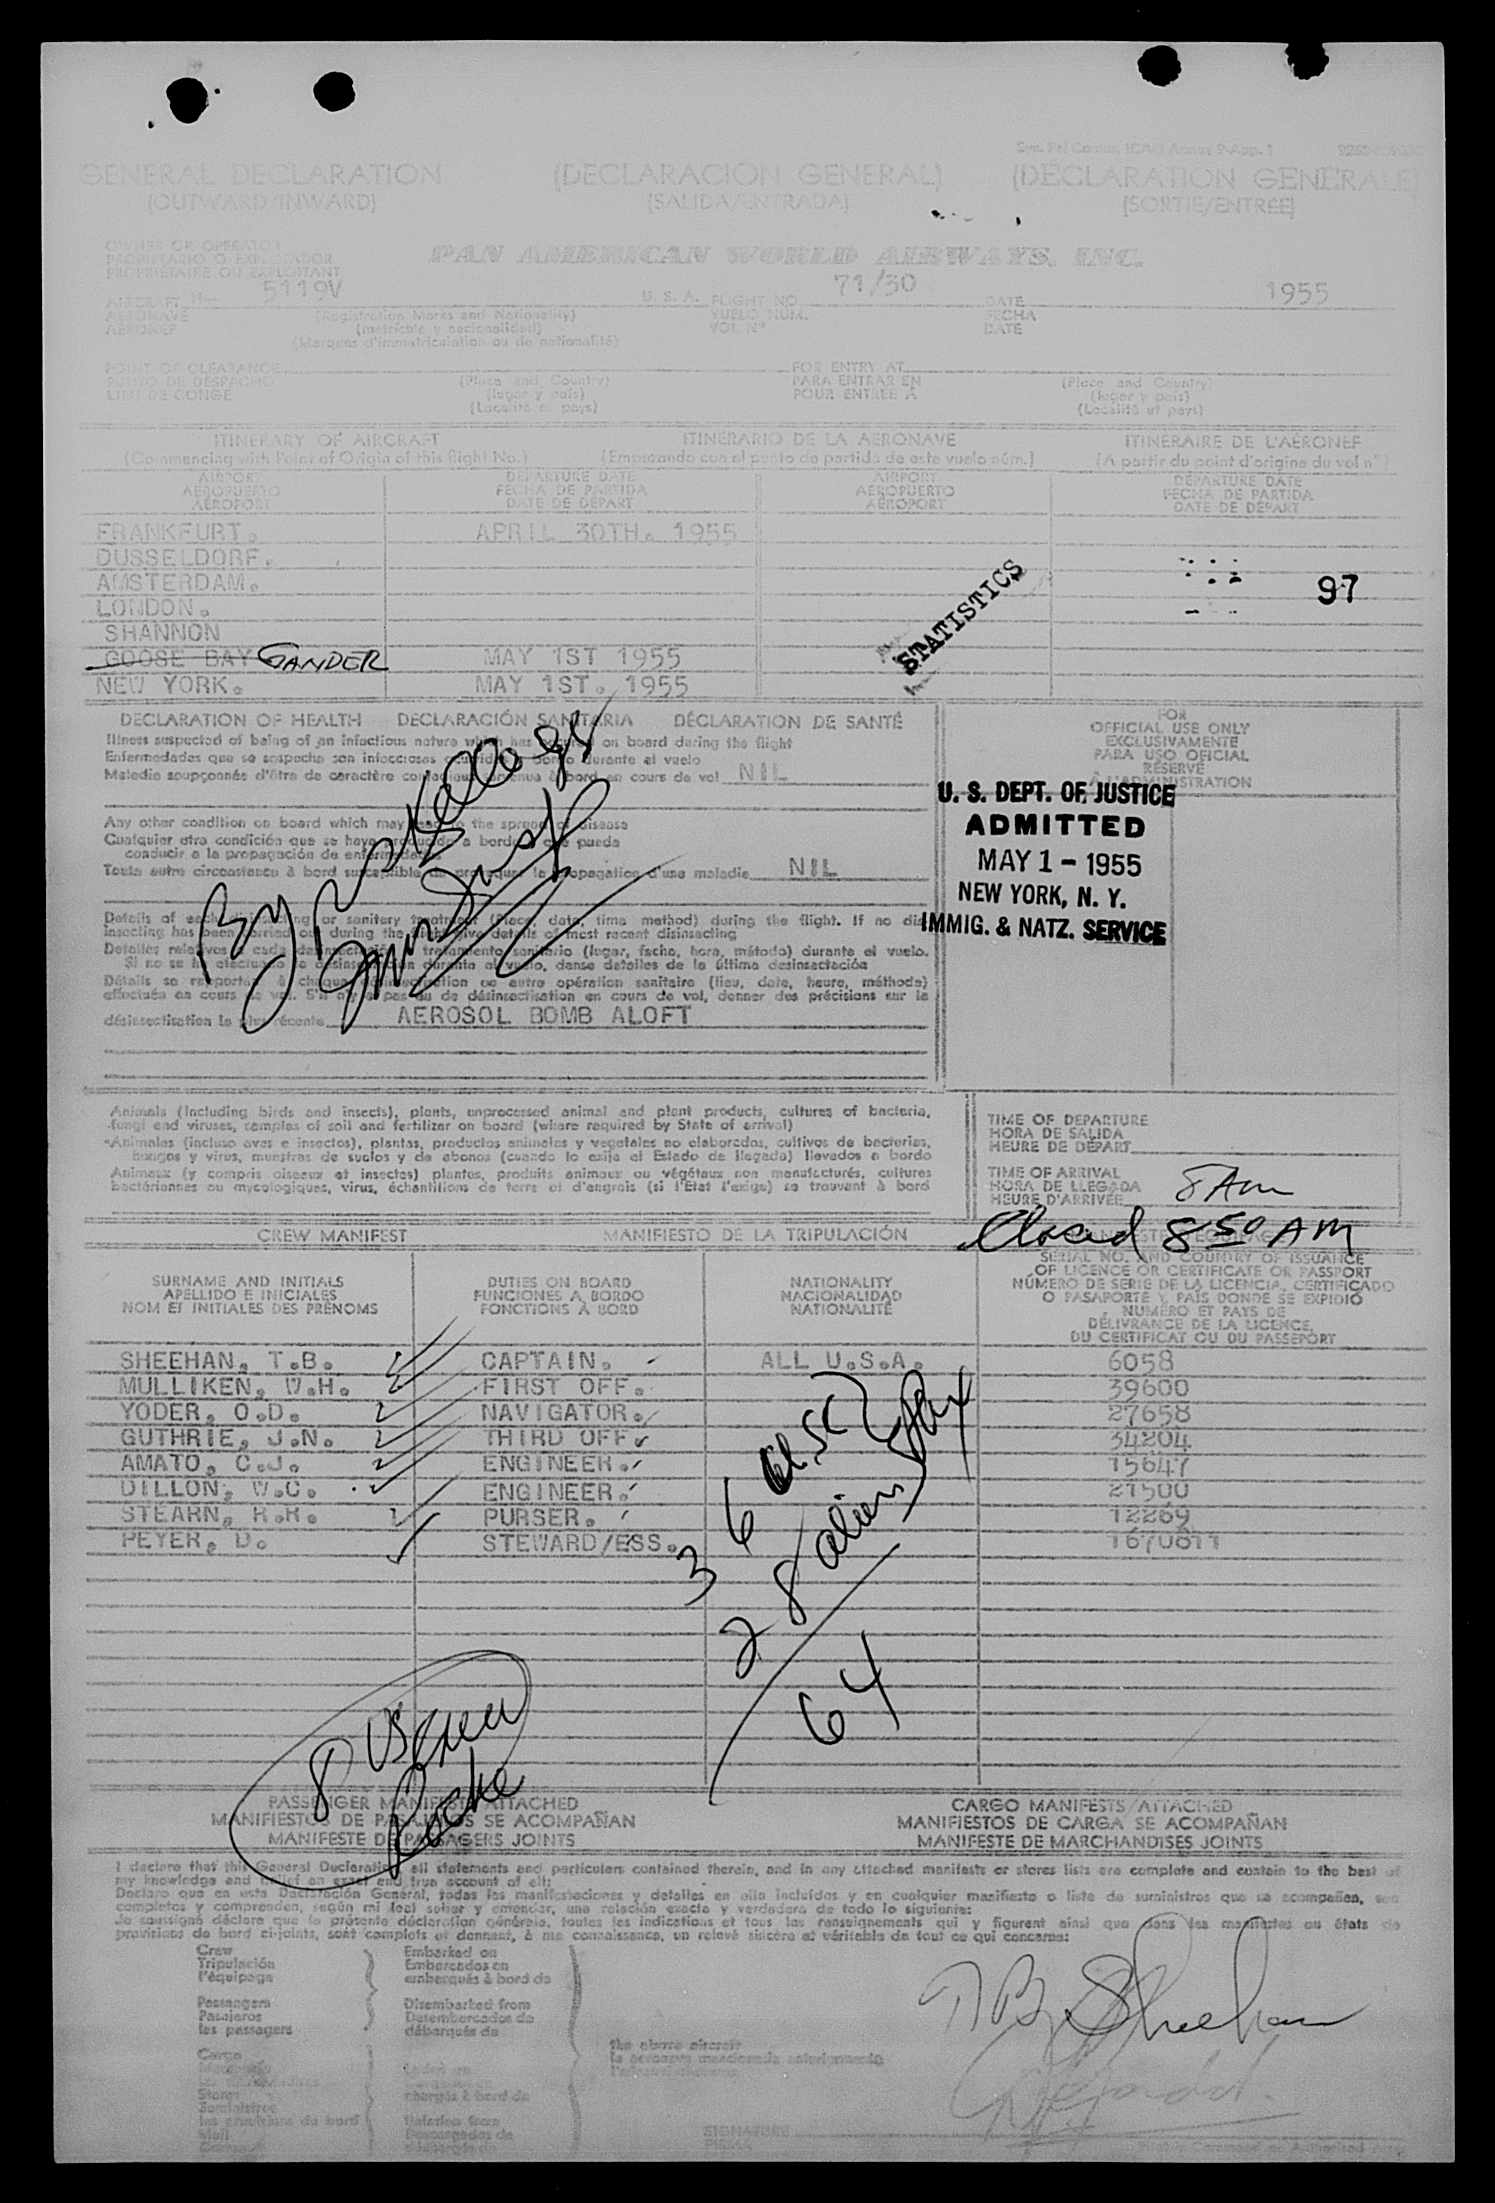 GENERAL DECLARATION (DECLARACION GENERAL) (DÉCLARATION GENERALE)
(OUTWARD/INWARD) (SALIDA/ENTRADA) (SORTIE/ENTRÉE)
OWNER OR OPERATOR
PROPIETARIO O EXPLOTADOR
PROPRIÉTAIRE OU EXPLOITANT
PAN AMERICAN WORLD AIRWAYS, INC.
AIRCRAFT N- 5119V U. S. A. FLIGHT NO. 71/30 DATE 1955
AERONAVE (Registration Marks and Nationality) VUELO NUM. FECHA
AÉRONEF (matrícula y nacionalidad) VOL Nº DATE
(Marques d'immatriculation ou de nationalité)
POINT OF CLEARANCE FOR ENTRY AT
PUNTO DE DESPACHO (Place and Country) PARA ENTRAR EN (Place and Country)
LIEU DE CONGE (lugar y país) POUR ENTRÉE À (lugar y país)
(Localité et pays) (Localité et pays)
ITINERARY OF AIRCRAFT ITINERARIO DE LA AERONAVE ITINERAIRE DE L'AÉRONEF
(Commencing with Point of Origin of this flight No.) (Empezando con el punto de partida de este vuelo núm.) (A partir du point d'origine du vol nº)
AIRPORT DEPARTURE DATE AIRPORT DEPARTURE DATE
AEROPUERTO FECHA DE PARTIDA AEROPUERTO FECHA DE PARTIDA
AÉROPORT DATE DE DÉPART AÉROPORT DATE DE DÉPART
FRANKFURT. APRIL 30TH. 1955
DUSSELDORF.
AMSTERDAM.
97
LONDON.
STATISTICS
SHANNON
GOOSE BAY GANDER MAY 1ST 1955
NEW YORK. MAY 1ST. 1955
DECLARATION OF HEALTH DECLARACIÓN SANITARIA DÉCLARATION DE SANTÉ
Illness suspected of being of an infectious nature which has occurred on board during the flight
Enfermedades que se sospecha son infecciosas ocurridas a bordo durante el vuelo
Maladie soupçonnée d'être de caractère contagieux survenue à bord en cours de vol NIL
FOR
OFFICIAL USE ONLY
EXCLUSIVAMENTE
PARA USO OFICIAL
RÉSERVÉ
À L'ADMINISTRATION
U. S. DEPT. OF JUSTICE
ADMITTED
MAY 1 - 1955
NEW YORK, N. Y.
IMMIG. & NATZ. SERVICE
Any other condition on board which may lead to the spread of disease
Cualquier otra condición que se haya producido a bordo y que pueda
conducir a la propagación de enfermedades
Toute autre circonstance à bord susceptible de provoquer la propagation d'une maladie NIL
Details of each disinsecting or sanitary treatment (Place, date, time method) during the flight. If no dis-
insecting has been carried out during the flight give details of most recent disinsecting
Detalles relativos a cada desinsectación o tratamiento sanitario (lugar, fecha, hora, método) durante el vuelo.
Si no se ha efectuado la desinsectación durante el vuelo, dense detalles de la última desinsectación
Détails se rapportant à chaque désinsectisation ou autre opération sanitaire (lieu, date, heure, méthode)
effectuée en cours de vol. S'il n'y a pas eu de désinsectisation en cours de vol, donner des précisions sur la
désinsectisation la plus récente AEROSOL BOMB ALOFT
Animals (including birds and insects), plants, unprocessed animal and plant products, cultures of bacteria,
fungi and viruses, samples of soil and fertilizer on board (where required by State of arrival)
Animales (incluso aves e insectos), plantas, productos animales y vegetales no elaborados, cultivos de bacterias,
hongos y virus, muestras de suelos y de abonos (cuando lo exija el Estado de llegada) llevados a bordo
Animaux (y compris oiseaux et insectes) plantes, produits animaux ou végétaux non manufacturés, cultures
bactériennes ou mycologiques, virus, échantillons de terre et d'engrais (si l'État l'exige) se trouvant à bord
TIME OF DEPARTURE
HORA DE SALIDA
HEURE DE DÉPART
TIME OF ARRIVAL
HORA DE LLEGADA 8 Am
HEURE D'ARRIVÉE
Closed 8 50 AM
CREW MANIFEST MANIFIESTO DE LA TRIPULACIÓN
SURNAME AND INITIALS
APELLIDO E INICIALES
NOM ET INITIALES DES PRÉNOMS
DUTIES ON BOARD
FUNCIONES A BORDO
FONCTIONS À BORD
NATIONALITY
NACIONALIDAD
NATIONALITÉ
SERIAL NO. AND COUNTRY OF ISSUANCE
OF LICENCE OR CERTIFICATE OR PASSPORT
NÚMERO DE SERIE DE LA LICENCIA, CERTIFICADO
O PASAPORTE Y PAÍS DONDE SE EXPIDIÓ
NUMÉRO ET PAYS DE
DÉLIVRANCE DE LA LICENCE,
DU CERTIFICAT OU DU PASSEPORT
SHEEHAN, T.B. CAPTAIN. ALL U.S.A. 6058
MULLIKEN, W.H. FIRST OFF. 39600
YODER, O.D. NAVIGATOR. 27658
GUTHRIE, J.N. THIRD OFF. 34204
AMATO, C.J. ENGINEER. 15647
DILLON, W.C. ENGINEER. 21500
STEARN, R.R. PURSER. 12269
PEYER, D. STEWARD/ESS. 1670811
36
28 aliens
64
8 US Crew
PASSENGER MANIFESTS ATTACHED CARGO MANIFESTS ATTACHED
MANIFIESTOS DE PASAJEROS SE ACOMPAÑAN MANIFIESTOS DE CARGA SE ACOMPAÑAN
MANIFESTE DE PASSAGERS JOINTS MANIFESTE DE MARCHANDISES JOINTS
I declare that this General Declaration, all statements and particulars contained therein, and in any attached manifests or stores lists are complete and contain to the best of
my knowledge and belief an exact and true account of all:
Declaro que en esta Declaración General, todas las manifestaciones y detalles en ella incluídos y en cualquier manifiesto o lista de suministros que se acompañen, son
completos y comprenden, según mi leal saber y entender, una relación exacta y verdadera de todo lo siguiente:
Je soussigné déclare que la présente déclaration générale, toutes les indications et tous les renseignements qui y figurent ainsi que dans les manifestes ou états de
provisions de bord ci-joints, sont complets et donnent, à ma connaissance, un relevé sincère et véritable de tout ce qui concerne:
Crew Embarked on
Tripulación Embarcados en
l'équipage embarqués à bord de
Passengers Disembarked from
Pasajeros Desembarcados de
les passagers débarqués de
the above aircraft
la aeronave mencionada anteriormente
Cargo
Stores chargés à bord de
Suministros
les provisions de bord
T B Sheehan
SIGNATURE